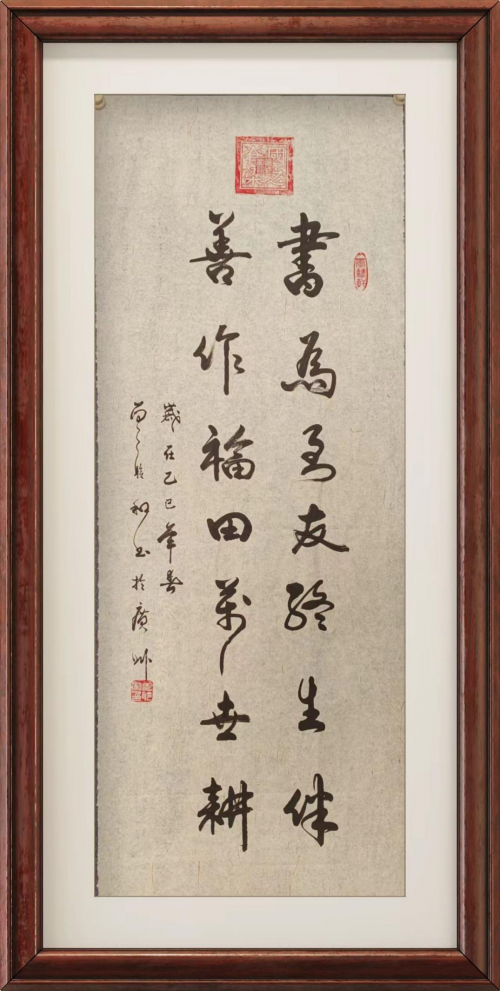 書為至友終生伴
善作福田萬世耕
歲在乙巳年春
和玉於廣州